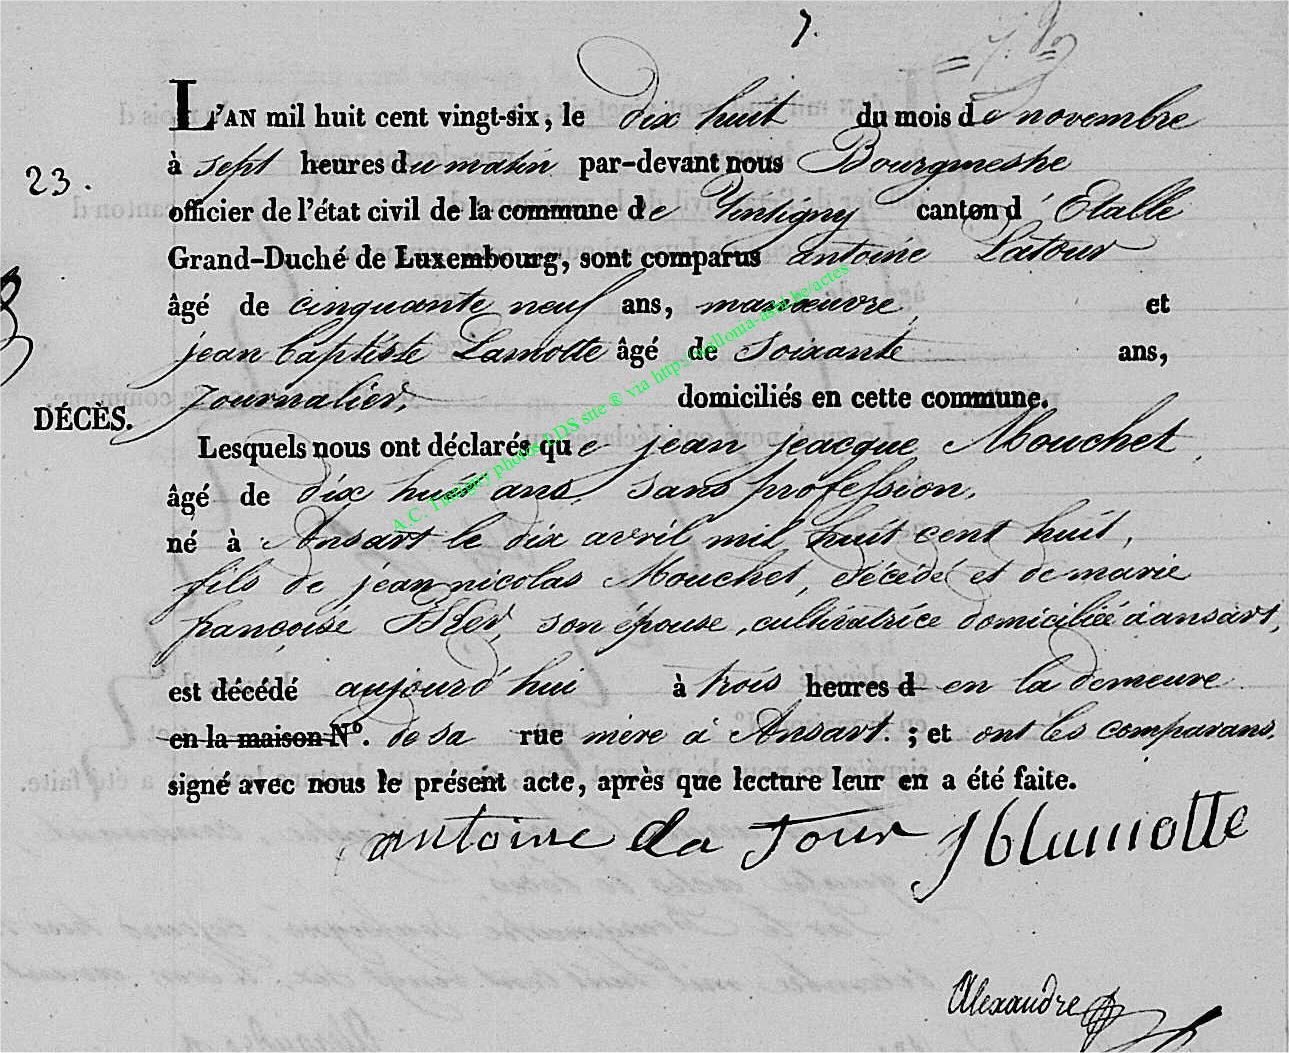 7.
L'AN mil huit cent vingt-six, le dix huit du mois de novembre
23. à sept heures du matin par-devant nous Bourgmestre
officier de l'état civil de la commune de Tintigny canton d'Etalle
Grand-Duché de Luxembourg, sont comparus antoine Latour
âgé de cinquante neuf ans, manœuvre, et
jean baptiste Lamotte âgé de soixante ans,
journalier, domiciliés en cette commune.
DÉCÈS.
Lesquels nous ont déclarés que jean jeacque Mouchet,
âgé de dix huit ans, sans profession,
né à Ansart le dix avril mil huit cent huit,
fils de jean nicolas Mouchet, décédé et de marie
françoise son épouse, cultivatrice domiciliée à ansart,
est décédé aujourd'hui à trois heures d en la demeure
en la maison N°. de sa rue mère à Ansart. ; et ont les comparans,
signé avec nous le présent acte, après que lecture leur en a été faite.
antoine la Tour Jblamotte
Alexandre
A.C. Tintigny photos DDS site ® via http://wallonia-asbl.be/actes